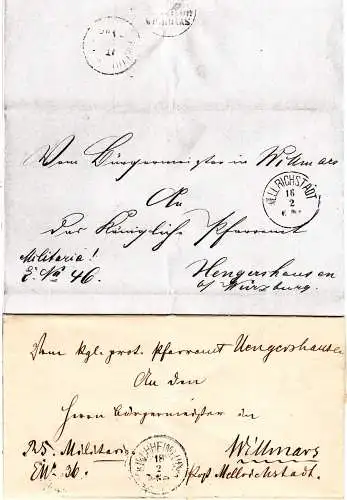 Vom Bürgermeister in Willmars
An
das Königliche Pfarramt
Militaria!
E. No 46.
Uengershausen
b/ Würzburg.
MELLRICHSTADT
16
2
Vom kgl. prot. Pfarramt Uengershausen
An den
Herrn Bürgermeister in
R.S. Militaria
Willmars
E.No 36.
Post Mellrichstadt.
KIRCHHEIM
18
2